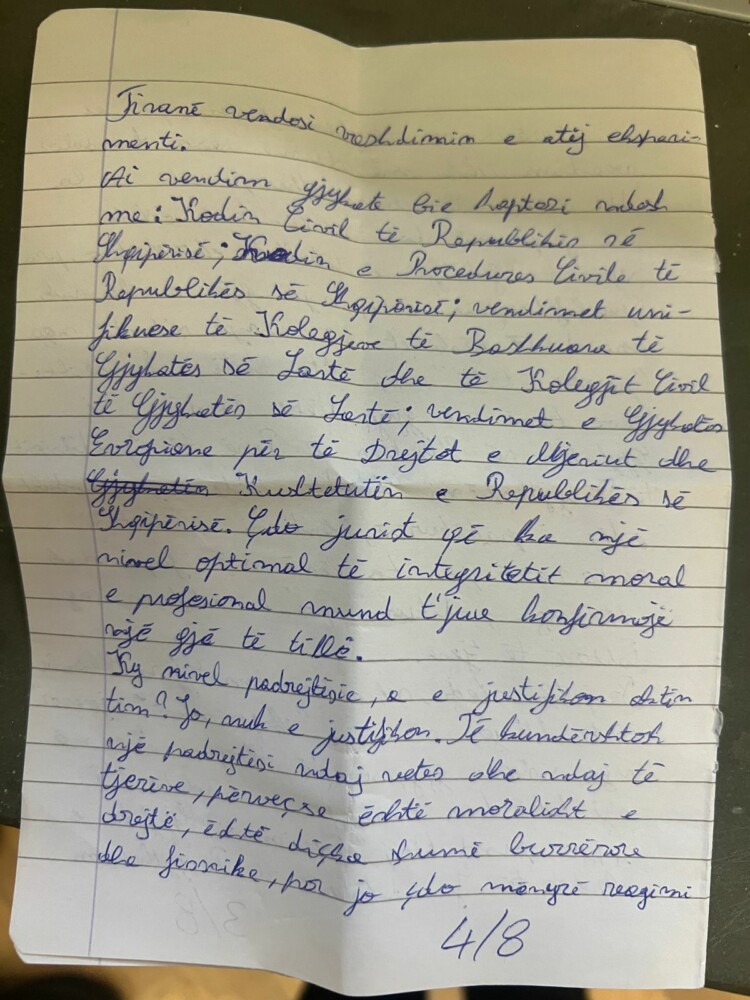 Tiranë vendosi vazhdimin e atij ekspari-
menti.
Ai vendim gjykate bie haptazi ndesh
me: Kodin Civil të Republikës së
Shqipërisë; Kodin e Procedures Civile të
Republikës së Shqipërisë; vendimet uni-
fikuese të Kolegjeve të Bashkuara të
Gjykatës së Lartë dhe të Kolegjit Civil
të Gjykatës së Lartë; vendimet e Gjykatës
Evropiane për të Drejtat e Njeriut dhe
Kushtetutën e Republikës së
Shqipërisë. Çdo jurist që ka një
nivel optimal të integritetit moral
e profesional mund t'jua konfirmojë
një gjë të tillë.
Ky nivel padrejtësie, a e justifikon aktin
tim? Jo, nuk e justifikon. Të kundërshtosh
një padrejtësi ndaj vetes dhe ndaj të
tjerëve, përveçse është moralisht e
drejtë, është diçka shumë burrërore
dhe fisnike, por jo çdo mënyrë reagimi
4/8